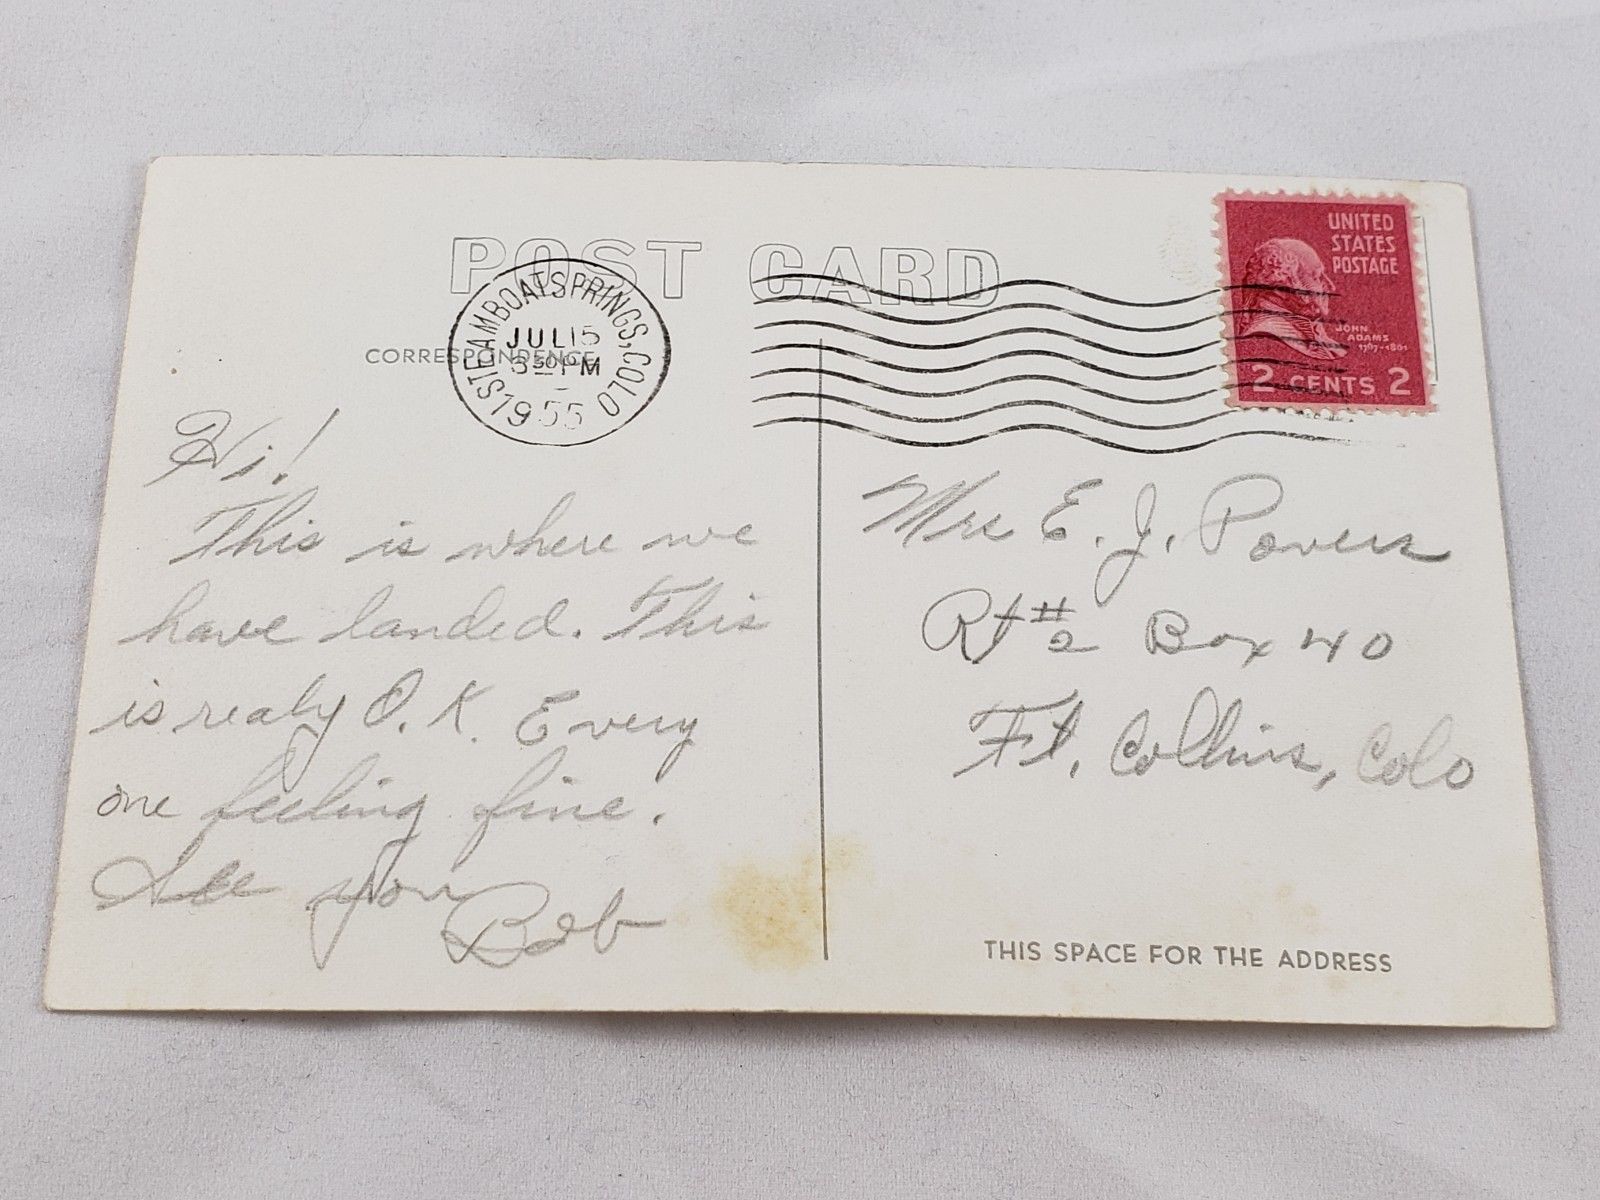 POST CARD
STEAMBOAT SPRINGS, COLO
JUL 15
3 30 PM
1955
UNITED
STATES
POSTAGE
JOHN
ADAMS
1797-1801
2 CENTS 2
CORRESPONDENCE
Hi!
This is where we
have landed. This
is realy O.K. Every
one feeling fine.
See you
Bob
Mrs E. J. Powers
Rt #2 Box 40
Ft. Collins, Colo
THIS SPACE FOR THE ADDRESS